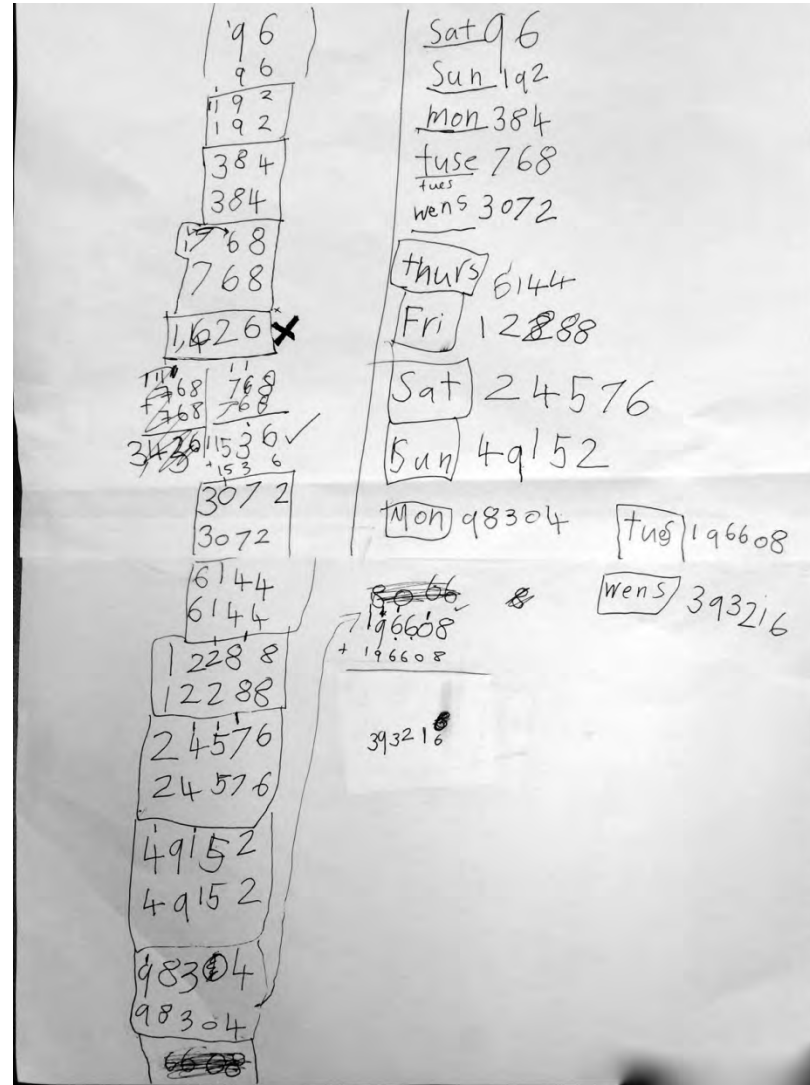 96
96
192
192
384
384
768
768
1,626 X
768
+ 768
3426
768
768
1536 ✓
+ 1536
3072
3072
6144
6144
12288
12288
24576
24576
49152
49152
98304
98304
6608
Sat 96
Sun 192
mon 384
tuse 768
tues
wens 3072
thurs 6144
Fri 12288
Sat 24576
Sun 49152
Mon 98304
tues 196608
wens 393216
196608 ✓
+ 196608
393216